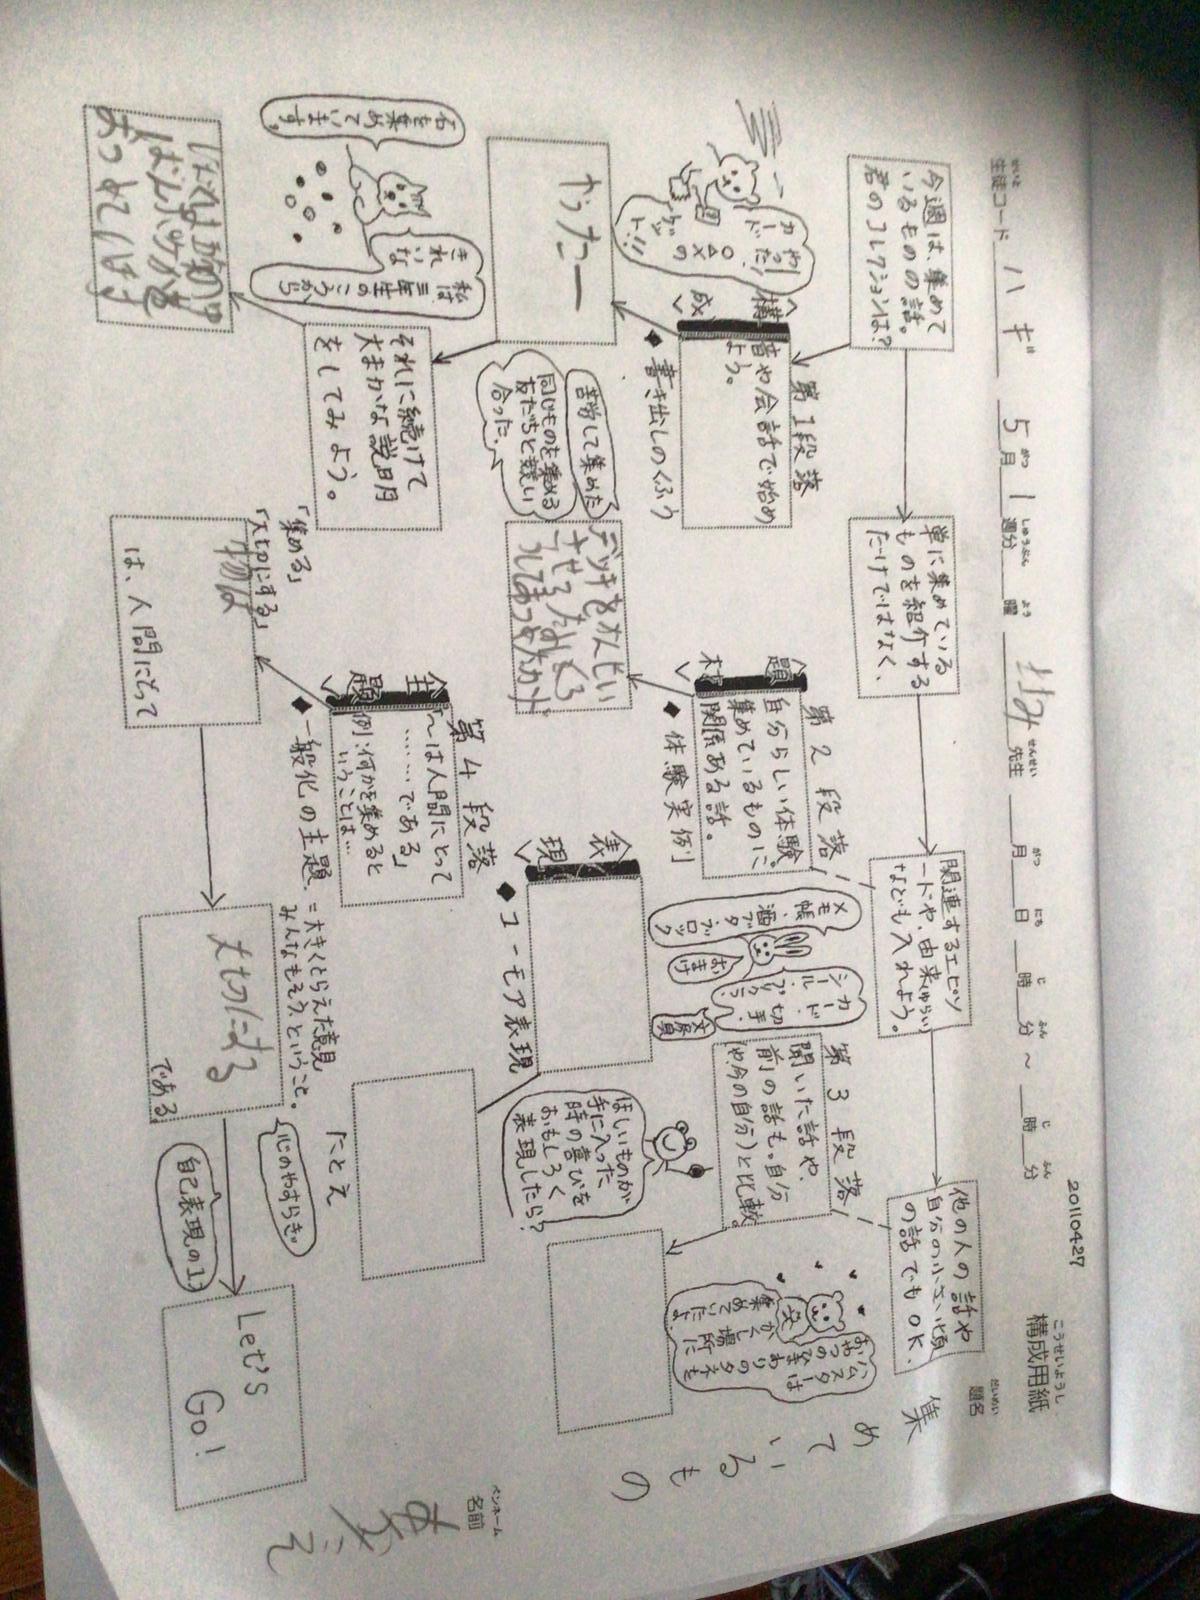 20110427
こうせいようし
構成用紙
せいと
生徒コード ハギ
5月1週分
がつ
しゅうぶん
よう
曜
せんせい
先生
月 日 時 分 ~ 時 分
がつ にち じ ふん じ ふん
だいめい
題名
集めているもの
ペンネーム
名前
今週は、集めて
いるものの話。
君のコレクションは?
単に集めている
ものを紹介する
だけではなく、
関連するエピソ
ードや、由来(ゆらい)
なども入れよう。
他の人の話や
自分の小さい頃
の話でもOK.
第1段落
〈構成〉
音や会話で始め
よう。
◆書き出しのくふう
やった!
カード
○△×の
ゲッ
ト!!
やったー
それに続けて
大まかな説明
をしてみよう。
石を集めています。
私は三年生のころから
きれいな
第2段落
〈題材〉
自分らしい体験
集めているものに、
関係ある話。
◆体験実例
苦労して集めた
同じものを集める
友だちと競い
合った、
メモ帳、酒
ブタ、ブロック
おまけ
カード、切手、
シール、プラ
文房具
第3段落
聞いた話や、
前の話も。自分
(や、今の自分)と比較。
ハムスターは
おやつのヒマワリのタネを
かくし場所に
集めていたよ。
〈表現〉
◆ユーモア表現
ほしいものが
手に入った
時の喜びを
おもしろく
表現したら?
たとえ
第4段落
〈主題〉
「~は人間にとって
……である」
例:何かを集めると
いうことは…
◆一般化の主題
=大きくとらえた意見
みんなもそう、ということ。
「集める」
「大切にする」
物は
は、人間にとって
大切にする
である
心のやすらぎ。
自己表現の1つ
Let's
Go!